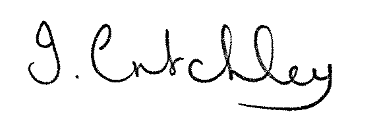 J. Critchley